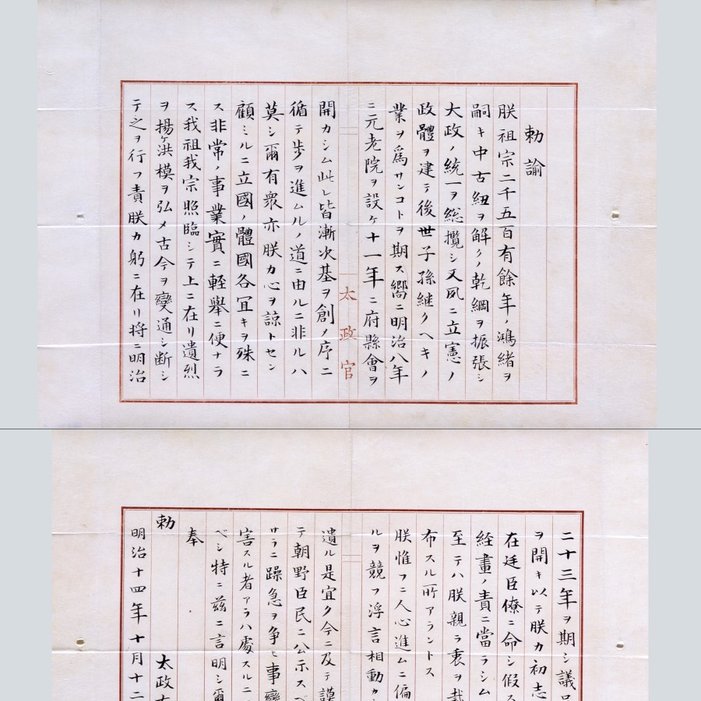 勅諭
朕祖宗二千五百有餘年ノ鴻緒ヲ
嗣キ中古紐ヲ解クノ乾綱ヲ振張シ
大政ノ統一ヲ総攬シ又夙ニ立憲ノ
政體ヲ建テ後世子孫継クヘキノ
業ヲ爲サンコトヲ期ス嚮ニ明治八年
ニ元老院ヲ設ケ十一年ニ府縣會ヲ
太政官
開カシム此レ皆漸次基ヲ創メ序ニ
循テ歩ヲ進ムルノ道ニ由ルニ非ルハ
莫シ爾有衆亦朕カ心ヲ諒トセン
顧ミルニ立國ノ體國各宜キヲ殊ニ
ス非常ノ事業實ニ軽擧ニ便ナラ
ス我祖我宗照臨シテ上ニ在リ遺烈
ヲ揚ケ洪模ヲ弘メ古今ヲ變通シ断シ
テ之ヲ行フ責朕カ躬ニ在リ将ニ明治
二十三年ヲ期シ議
ヲ開キ以テ朕カ初志
在廷臣僚ニ命シ假ス
経畫ノ責ニ當ラシム
至テハ朕親ラ衷ヲ裁
布スル所アラントス
朕惟フニ人心進ムニ偏
ルヲ競フ浮言相動カ
遺ル是宜ク今ニ及テ謨
テ朝野臣民ニ公示スヘ
サラニ躁急ヲ争ヒ事變
害スル者アラハ處スルニ
ヘシ特ニ茲ニ言明シ爾
奉
勅 太政
明治十四年十月十二